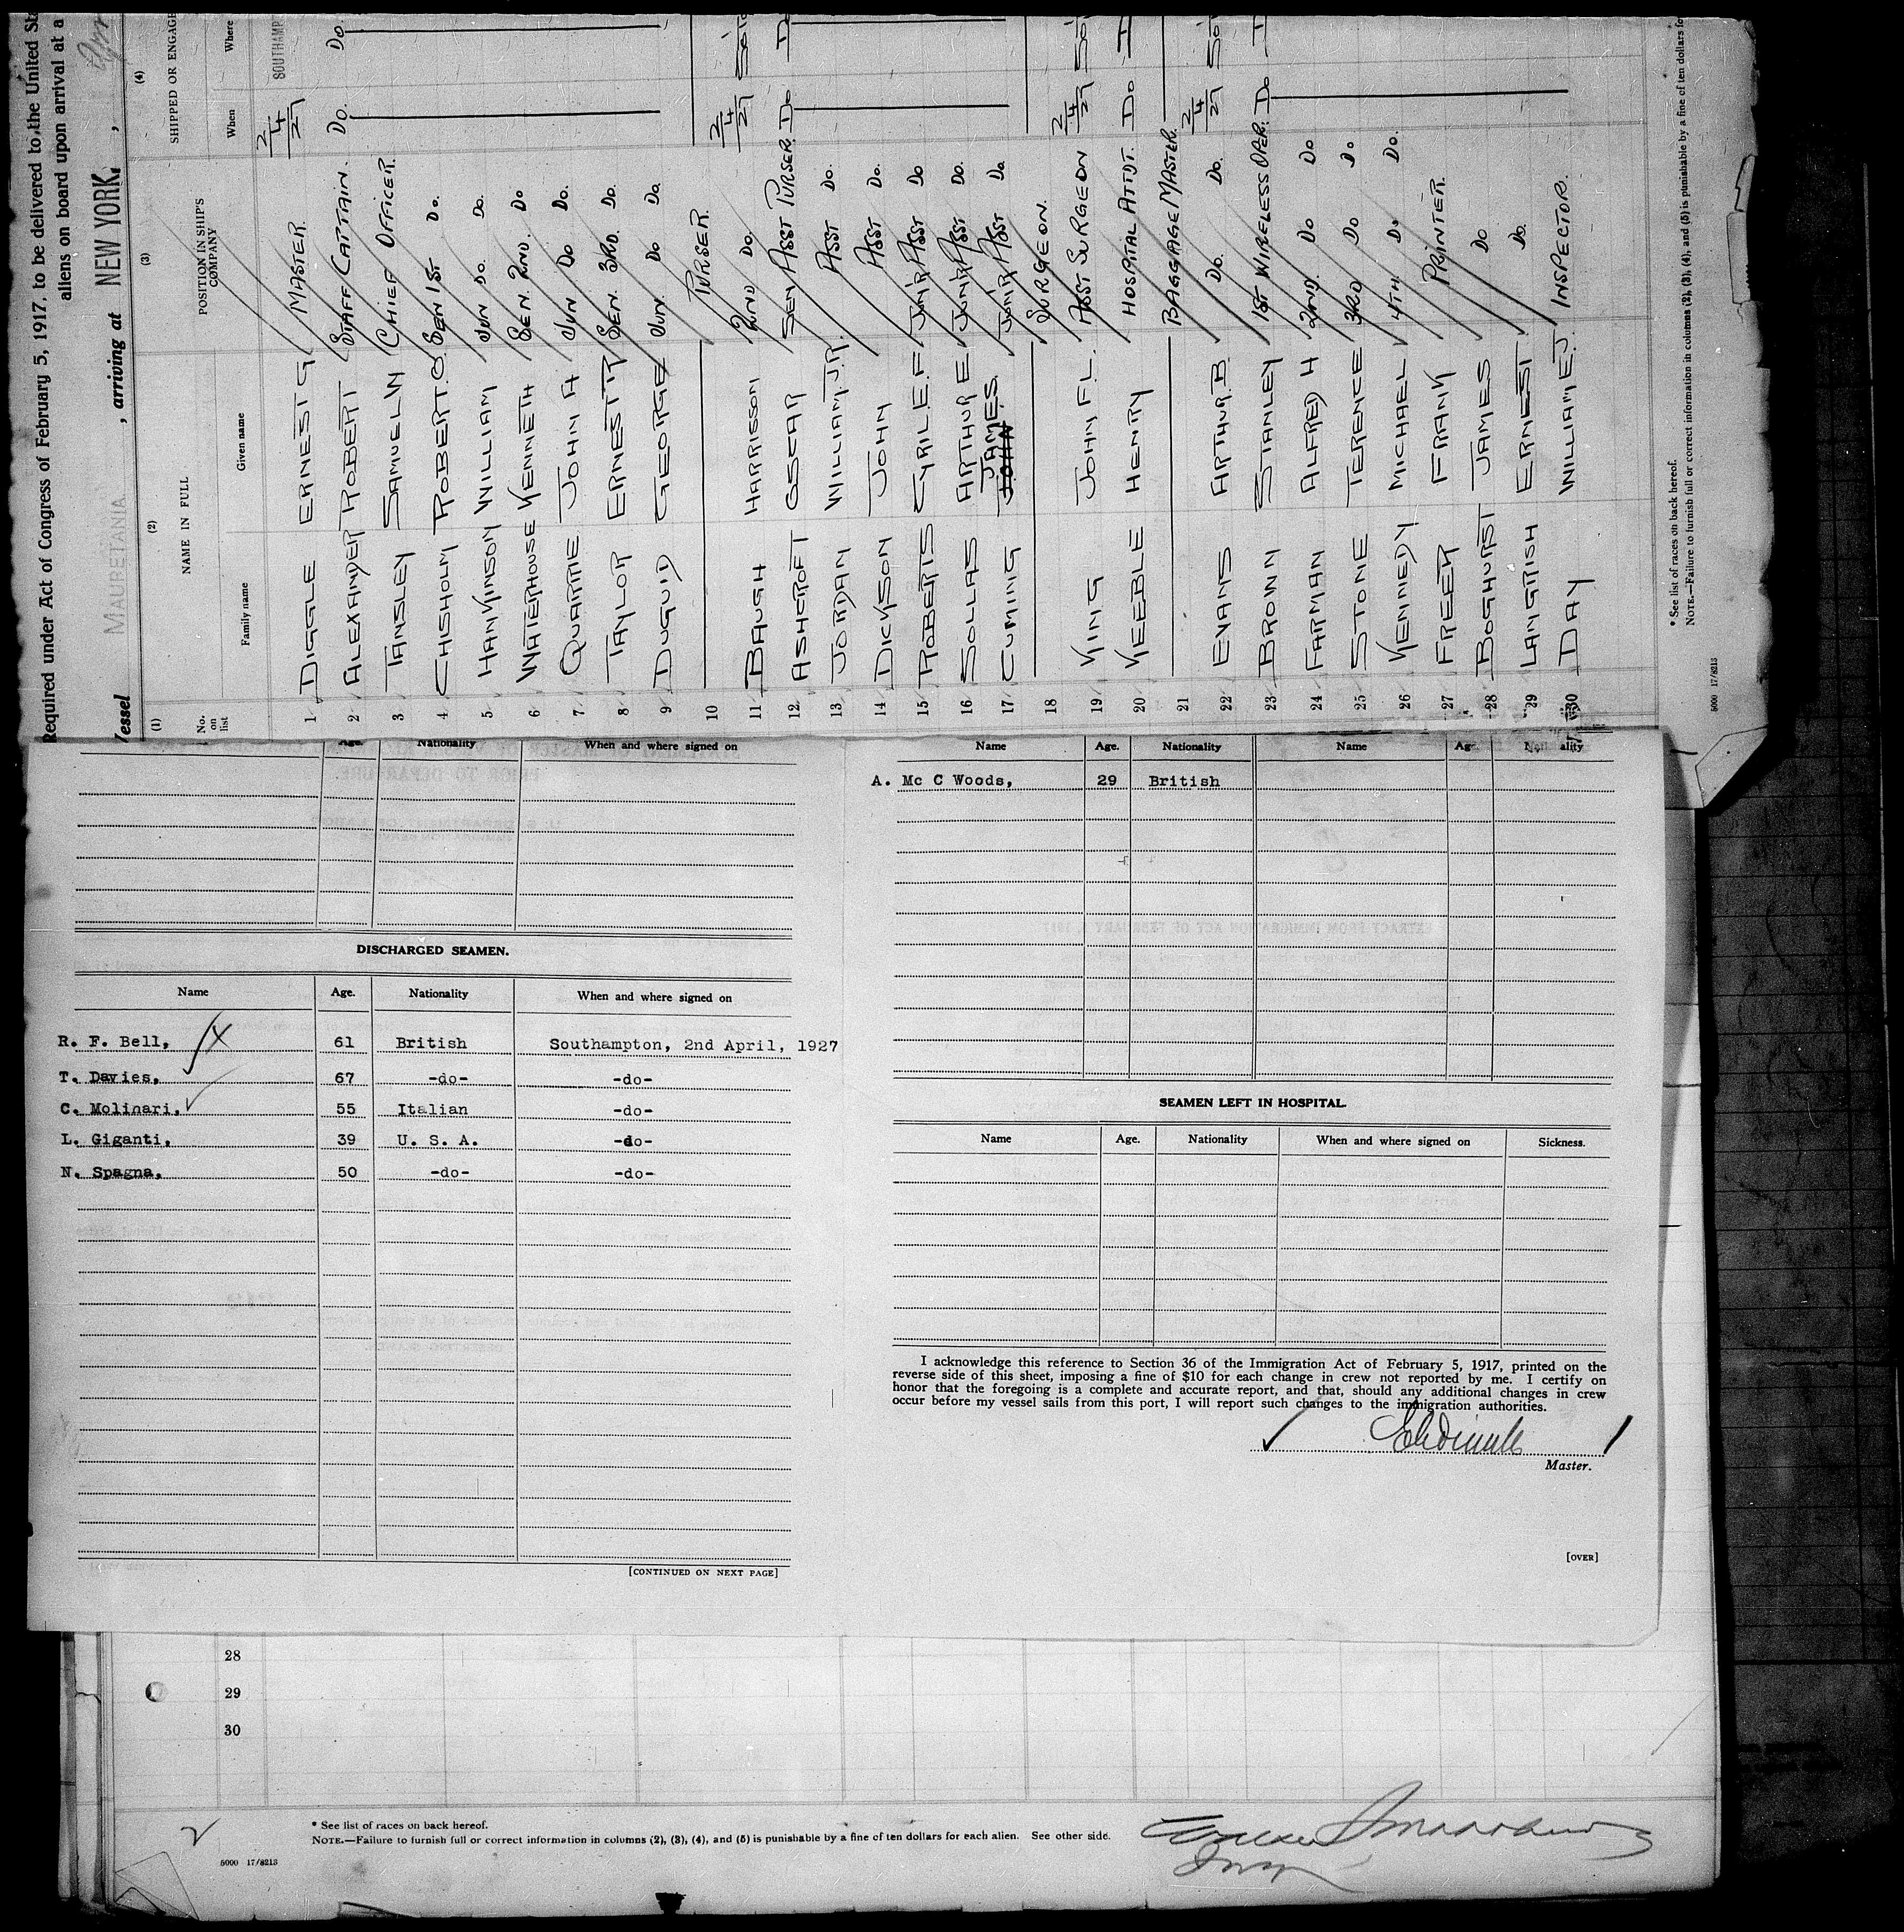 Required under Act of Congress of February 5, 1917, to be delivered to the United
aliens on board upon arrival at a
Vessel MAURETANIA, arriving at NEW YORK,
(1) (2) (3) (4)
No. on list
NAME IN FULL
Family name Given name
POSITION IN SHIP'S COMPANY
SHIPPED OR ENGAGE
When Where
1 DIGGLE ERNEST G MASTER 2/4/27 SOUTHAMP
2 ALEXANDER ROBERT STAFF CAPTAIN. Do. Do
3 TANSLEY SAMUEL W CHIEF OFFICER.
4 CHISHOLM ROBERT.O. SEN 1ST Do.
5 HANKINSON WILLIAM JUN Do. Do.
6 WATERHOUSE KENNETH SEN. 2ND. Do
7 QUARRIE JOHN A JUN Do Do.
8 TAYLOR ERNEST R SEN. 3RD. Do.
9 DUGUID GEORGE JUN. Do Do
10 PURSER
11 BAUGH HARRISON 2ND Do. 2/4/27 So'
12 ASHCROFT OSCAR SEN ASST PURSER. Do D
13 JORDAN WILLIAM.J.R. ASST Do.
14 DICKSON JOHN ASST Do.
15 ROBERTS CYRIL.E.F JUN'R ASST Do
16 SOLLAS ARTHUR E JUN'R ASST Do.
17 CUMING JAMES. JOHN. JUN'R ASST Do
18 SURGEON.
19 KING JOHN F.L. ASST SURGEON 2/4/27 So'
20 KEEBLE HENRY HOSPITAL ATTDT. Do D
21 BAGGAGE MASTER.
22 EVANS ARTHUR.B. Do. Do. 2/4/27 So'
23 BROWN STANLEY 1ST WIRELESS OPER. Do D
24 FARMAN ALFRED H 2ND. Do Do
25 STONE TERENCE 3RD Do Do
26 KENNEDY MICHAEL 4TH Do Do.
27 FREER FRANK PRINTER.
28 BOGHURST JAMES Do
29 LANGRISH ERNEST Do.
30 DAY WILLIAM E.J. INSPECTOR.
* See list of races on back hereof.
NOTE.—Failure to furnish full or correct information in columns (2), (3), (4), and (5) is punishable by a fine of ten dollars fo
5000 17/8213
Age. Nationality When and where signed on
DISCHARGED SEAMEN.
Name Age. Nationality When and where signed on
R. F. Bell, 61 British Southampton, 2nd April, 1927
T. Davies, 67 -do- -do-
C. Molinari, 55 Italian -do-
L. Giganti, 39 U. S. A. -do-
N. Spagna, 50 -do- -do-
[CONTINUED ON NEXT PAGE]
Name Age. Nationality Name Age. Nationality
A. Mc C Woods, 29 British
SEAMEN LEFT IN HOSPITAL.
Name Age. Nationality When and where signed on Sickness.
I acknowledge this reference to Section 36 of the Immigration Act of February 5, 1917, printed on the
reverse side of this sheet, imposing a fine of $10 for each change in crew not reported by me. I certify on
honor that the foregoing is a complete and accurate report, and that, should any additional changes in crew
occur before my vessel sails from this port, I will report such changes to the immigration authorities.
Master.
[OVER]
28
29
30
* See list of races on back hereof.
NOTE.—Failure to furnish full or correct information in columns (2), (3), (4), and (5) is punishable by a fine of ten dollars for each alien. See other side.
5000 17/8213